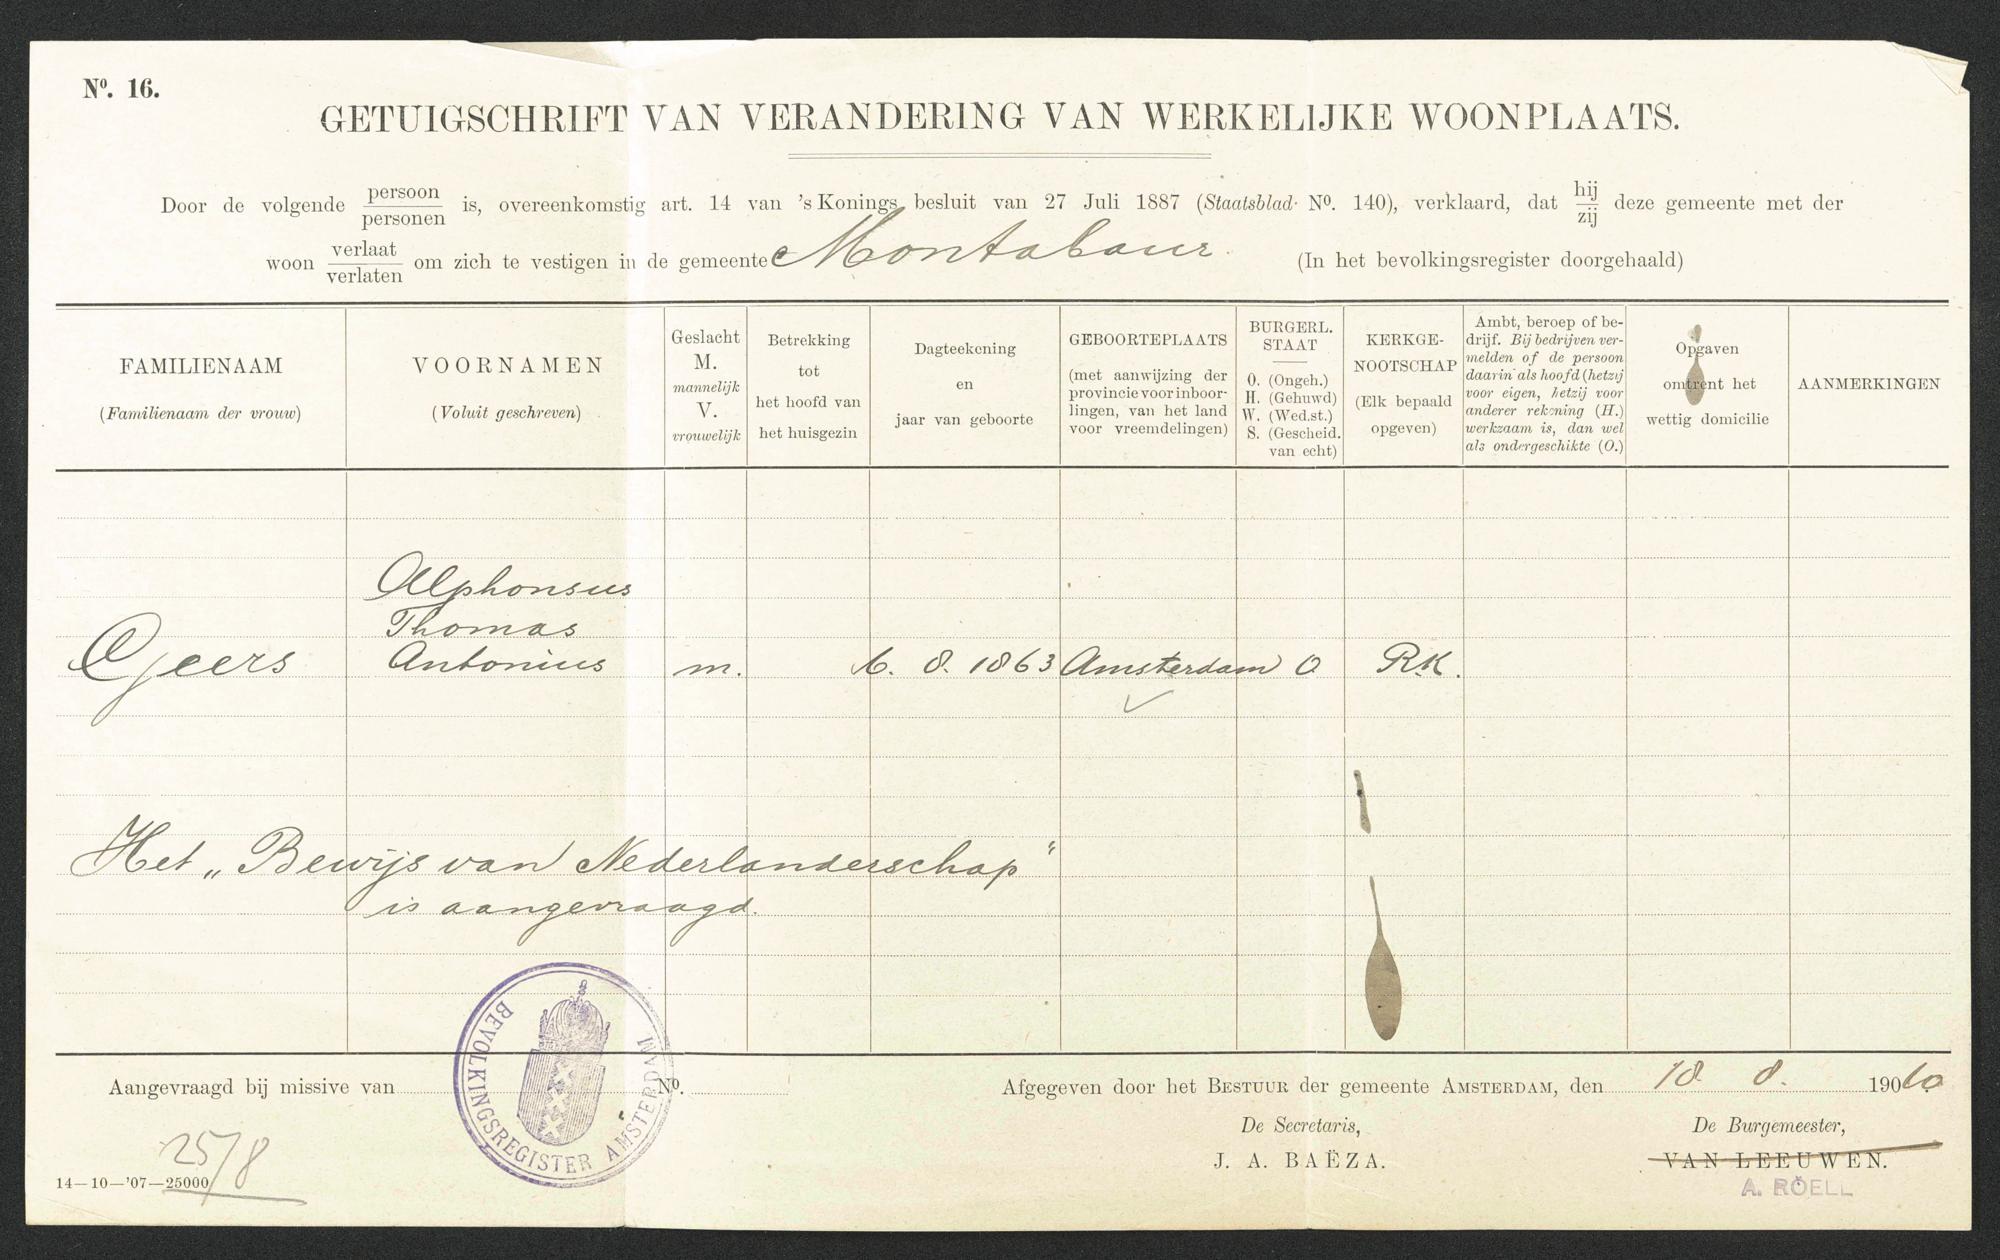 Nº. 16.
GETUIGSCHRIFT VAN VERANDERING VAN WERKELIJKE WOONPLAATS.
Door de volgende persoon/personen is, overeenkomstig art. 14 van 's Konings besluit van 27 Juli 1887 (Staatsblad Nº. 140), verklaard, dat hij/zij deze gemeente met der
woon verlaat/verlaten om zich te vestigen in de gemeente Montabaur (In het bevolkingsregister doorgehaald)
FAMILIENAAM
(Familienaam der vrouw)
VOORNAMEN
(Voluit geschreven)
Geslacht
M.
mannelijk
V.
vrouwelijk
Betrekking
tot
het hoofd van
het huisgezin
Dagteekening
en
jaar van geboorte
GEBOORTEPLAATS
(met aanwijzing der
provincie voor inboor-
lingen, van het land
voor vreemdelingen)
BURGERL.
STAAT
O. (Ongeh.)
H. (Gehuwd)
W. (Wed.st.)
S. (Gescheid.
van echt)
KERKGE-
NOOTSCHAP
(Elk bepaald
opgeven)
Ambt, beroep of be-
drijf. Bij bedrijven ver-
melden of de persoon
daarin als hoofd (hetzij
voor eigen, hetzij voor
anderer rekening (H.)
werkzaam is, dan wel
als ondergeschikte (O.)
Opgaven
omtrent het
wettig domicilie
AANMERKINGEN
Alphonsus
Thomas
Geers Antonius m. 6. 8. 1863 Amsterdam O RK.
Het „Bewijs van Nederlanderschap"
is aangevraagd.
BEVOLKINGSREGISTER AMSTERDAM
Aangevraagd bij missive van Nº.
Afgegeven door het BESTUUR der gemeente AMSTERDAM, den 18. 8. 19010.
De Secretaris,
J. A. BAËZA.
De Burgemeester,
VAN LEEUWEN.
A. RÖELL
25/8
14—10—'07—25000